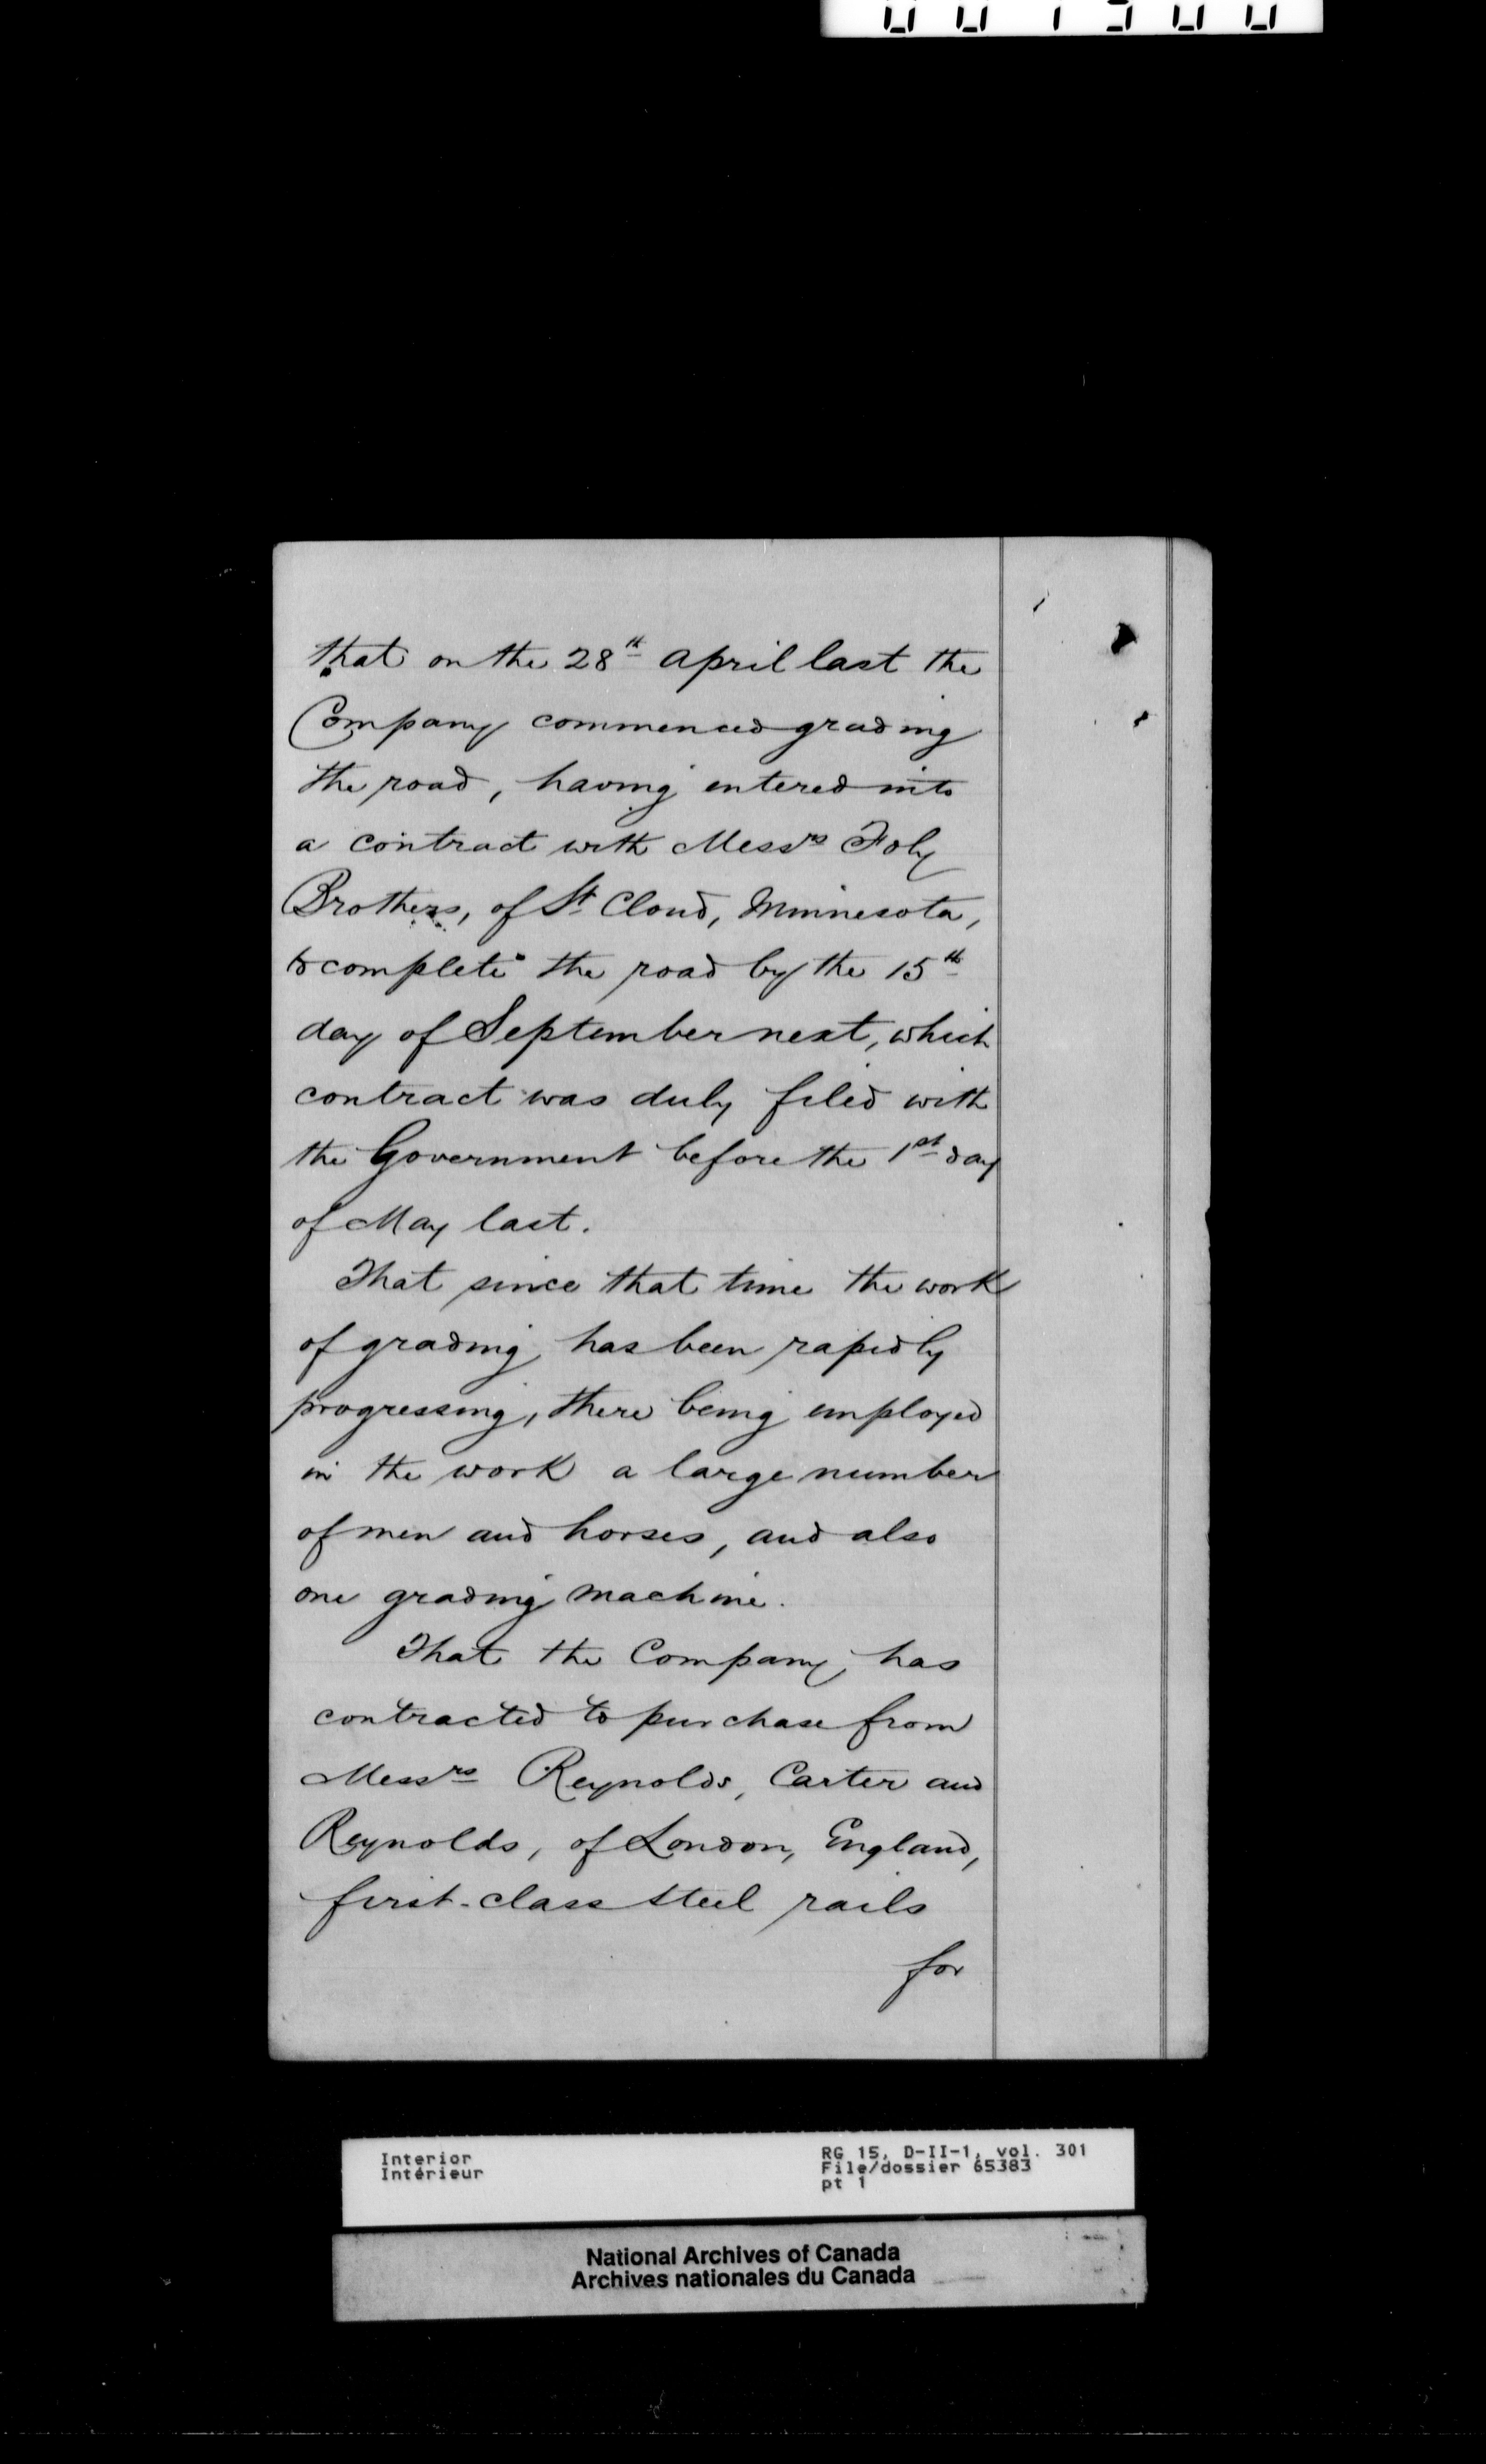 that on the 28th April last the
Company commenced grading
the road, having entered into
a contract with Messrs Foly
Brothers, of St Cloud, Minnesota,
to complete the road by the 15th
day of September next, which
contract was duly filed with
the Government before the 1st day
of May last.
That since that time the work
of grading has been rapidly
progressing, there being employed
in the work a large number
of men and horses, and also
one grading machine.
That the Company has
contracted to purchase from
Messrs Reynolds, Carter and
Reynolds, of London, England,
first-class steel rails
for
Interior
Intérieur
RG 15, D-II-1, vol. 301
File/dossier 65383
pt 1
National Archives of Canada
Archives nationales du Canada